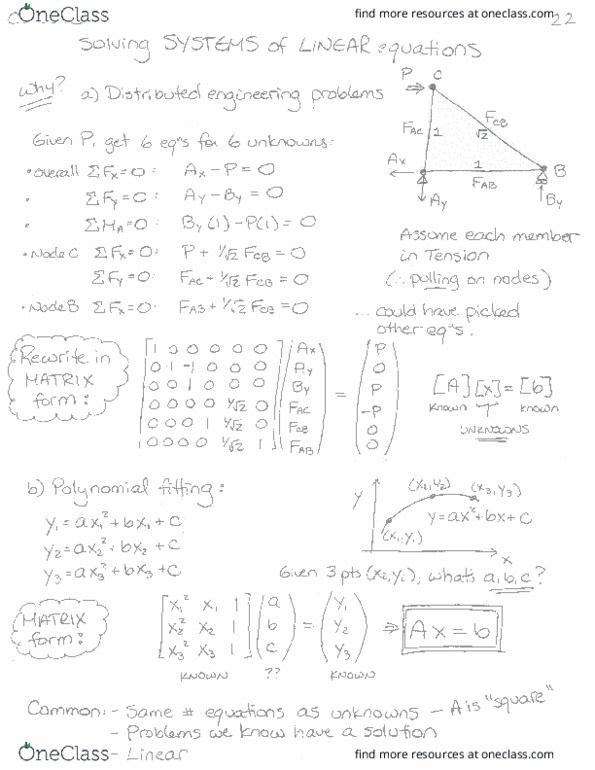 OneClass
find more resources at oneclass.com
22
Solving SYSTEMS of LINEAR equations
why? a) Distributed engineering problems
P C
F_AC 1 F_CB √2
Ax 1 B
F_AB
Ay By
Given P, get 6 eqⁿs for 6 unknowns:
• overall ΣFx=0: Ax - P = 0
• ΣFy=0: Ay - By = 0
• ΣM_A=0: By(1) - P(1) = 0
• Node C ΣFx=0: P + 1/√2 F_CB = 0
ΣFy=0: F_AC + 1/√2 F_CB = 0
• Node B ΣFx=0: F_AB + 1/√2 F_CB = 0
Assume each member
in Tension
(∴ pulling on nodes)
... could have picked
other eqⁿs.
Rewrite in
MATRIX
form:
[1 0 0 0 0 0] (Ax) (P)
[0 1 -1 0 0 0] (Ay) (0)
[0 0 1 0 0 0] (By) = (P)
[0 0 0 0 1/√2 0] (F_AC) (-P)
[0 0 0 1 1/√2 0] (F_CB) (0)
[0 0 0 0 1/√2 1] (F_AB) (0)
[A][x] = [b]
known known
UNKNOWNS
b) Polynomial fitting:
y₁ = ax₁² + bx₁ + c
y₂ = ax₂² + bx₂ + c
y₃ = ax₃² + bx₃ + c
y (x₂,y₂) (x₃,y₃)
y = ax² + bx + c
(x₁,y₁)
x
Given 3 pts (xᵢ,yᵢ), what's a, b, c?
MATRIX
form:
[x₁² x₁ 1] (a) (y₁)
[x₂² x₂ 1] (b) = (y₂) ⇒ Ax = b
[x₃² x₃ 1] (c) (y₃)
KNOWN ?? KNOWN
Common: - Same # equations as unknowns - A is "square"
- Problems we know have a solution
- Linear
OneClass
find more resources at oneclass.com